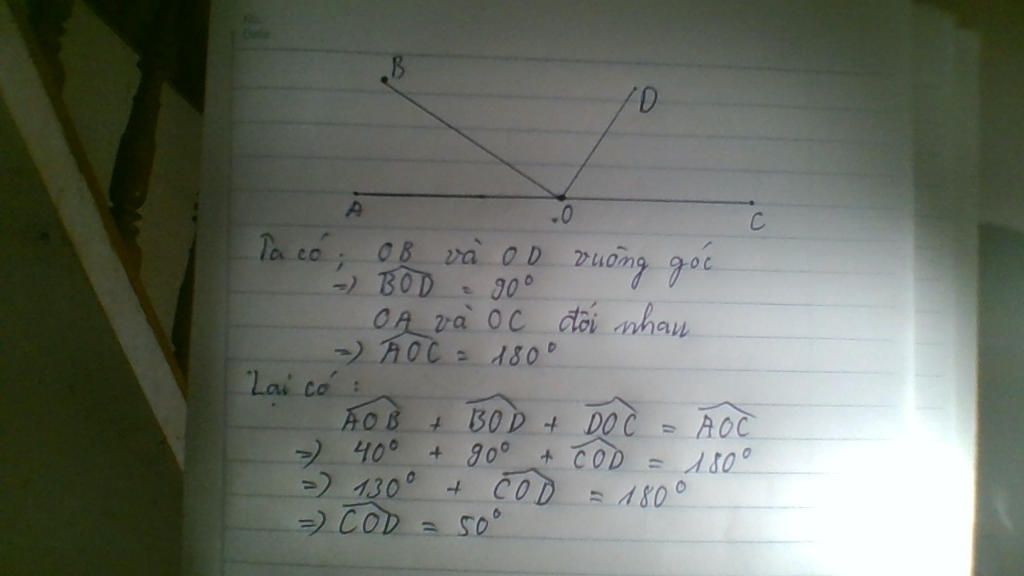 B
D
A
.O
C
Ta có; OB và OD vuông góc
=> \widehat{BOD} = 90°
OA và OC đối nhau
=> \widehat{AOC} = 180°
Lại có:
\widehat{AOB} + \widehat{BOD} + \widehat{DOC} = \widehat{AOC}
=> 40° + 90° + \widehat{COD} = 180°
=> 130° + \widehat{COD} = 180°
=> \widehat{COD} = 50°